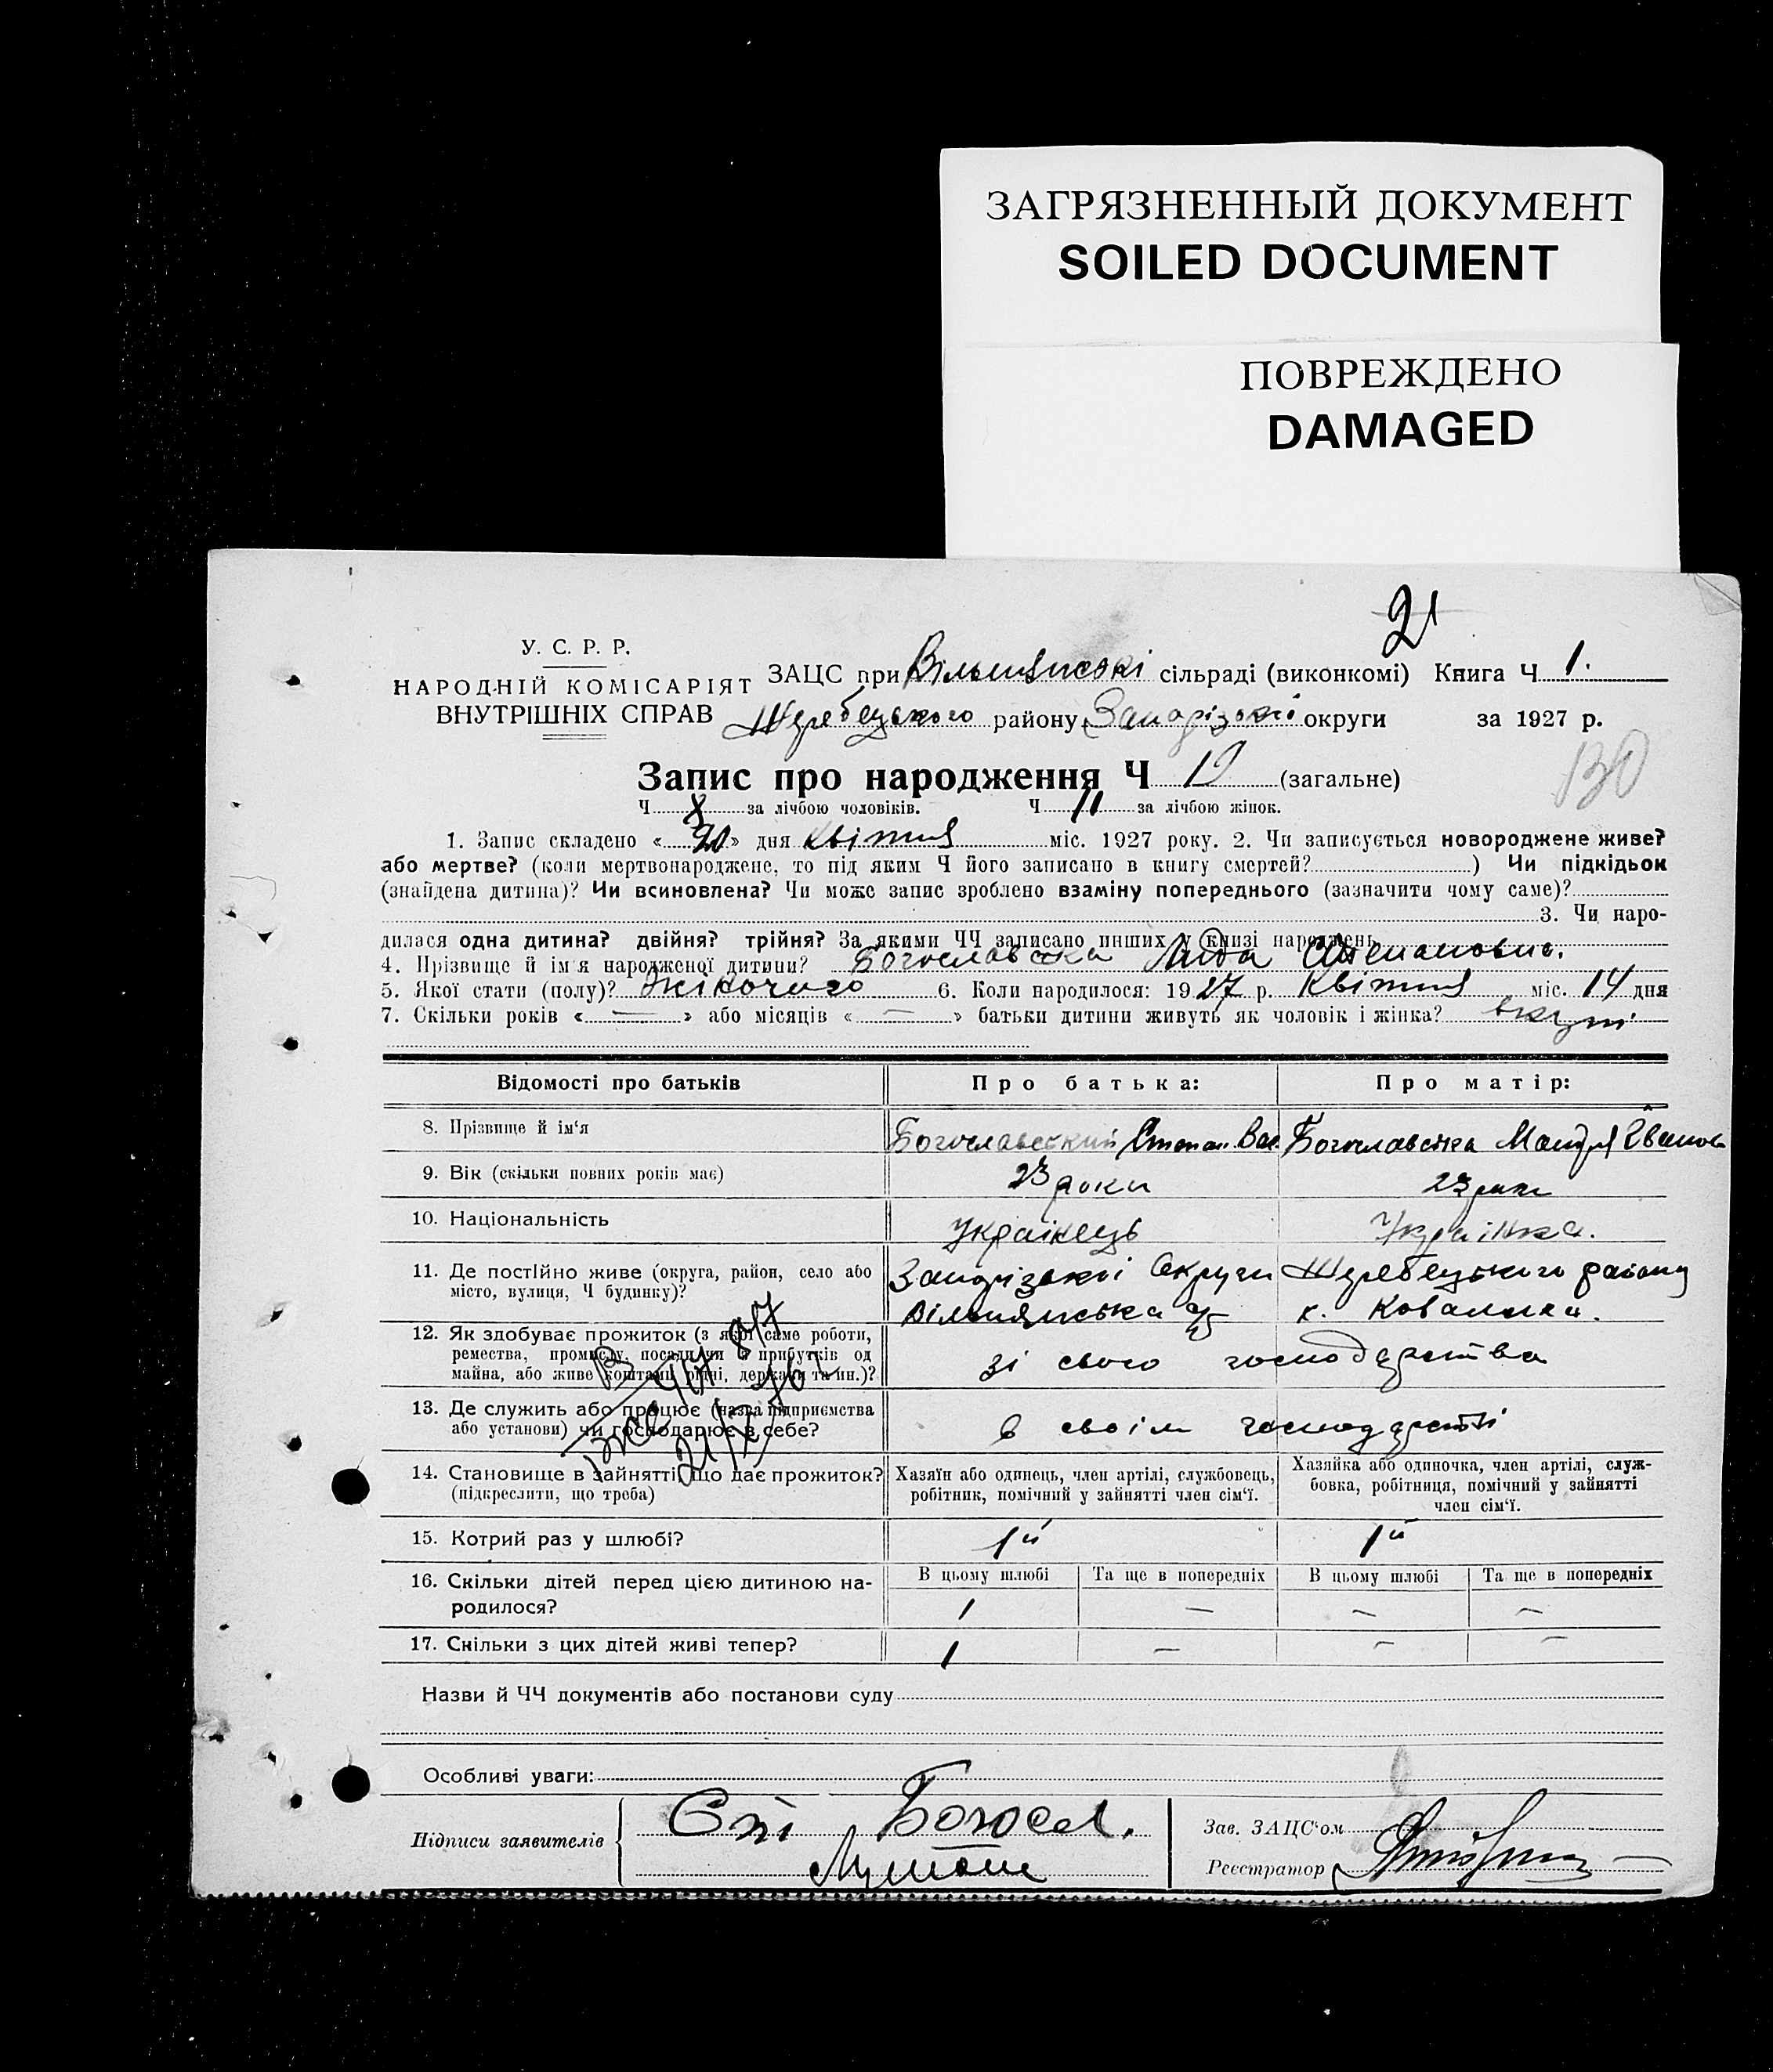 ЗАГРЯЗНЕННЫЙ ДОКУМЕНТ
SOILED DOCUMENT
ПОВРЕЖДЕНО
DAMAGED
21
У. С. Р. Р.
НАРОДНІЙ КОМІСАРІЯТ
ВНУТРІШНІХ СПРАВ
ЗАЦС при Вільнянській сільраді (виконкомі) Книга Ч 1.
Жеребецького району Запорізької округи за 1927 р.
130
Запис про народження Ч 19 (загальне)
Ч 8 за лічбою чоловіків. Ч 11 за лічбою жінок.
1. Запис складено « 20 » дня квітня міс. 1927 року. 2. Чи записується новороджене живе?
або мертве? (коли мертвонароджене, то під яким Ч його записано в книгу смертей? ) Чи підкідьок
(знайдена дитина)? Чи всиновлена? Чи може запис зроблено взаміну попереднього (зазначити чому саме)?
3. Чи наро-
дилася одна дитина? двійня? трійня? За якими ЧЧ записано инших у книзі народжень
4. Прізвище й ім'я народженої дитини? Богославська Ліда Степановна.
5. Якої стати (полу)? Жіночого 6. Коли народилося: 1927 р. Квітня міс. 14 дня
7. Скільки років « — » або місяців « — » батьки дитини живуть як чоловік і жінка? вкупі
Відомості про батьків Про батька: Про матір:
8. Прізвище й ім'я Богославський Степан Вас. Богославська Мария Іванов
9. Вік (скільки повних років має) 23 роки 23 роки
10. Національність Українець Українка.
11. Де постійно живе (округа, район, село або місто, вулиця, Ч будинку)? Запорізької Округи Жеребецького району
Вільнянська с/р х. Ковалика.
12. Як здобуває прожиток (з якої саме роботи, ремества, промислу, посади чи з прибутків од майна, або живе коштами рідні, держави та ин.)? зі свого господарства
13. Де служить або працює (назва підприємства або установи) чи господарює в себе? в своім господарстві
14. Становище в зайнятті, що дає прожиток? (підкреслити, що треба)
Хазяїн або одинець, член артілі, службовець, робітник, помічний у зайнятті член сім'ї.
Хазяйка або одиночка, член артілі, служ-бовка, робітниця, помічний у зайнятті член сім'ї.
15. Котрий раз у шлюбі? 1й 1й
16. Скільки дітей перед цією дитиною на-родилося?
В цьому шлюбі Та ще в попередніх В цьому шлюбі Та ще в попередніх
1 — — —
17. Скільки з цих дітей живі тепер? 1 — — —
Назви й ЧЧ документів або постанови суду
Особливі уваги:
Підписи заявителів
Зав. ЗАЦС'ом
Реєстратор